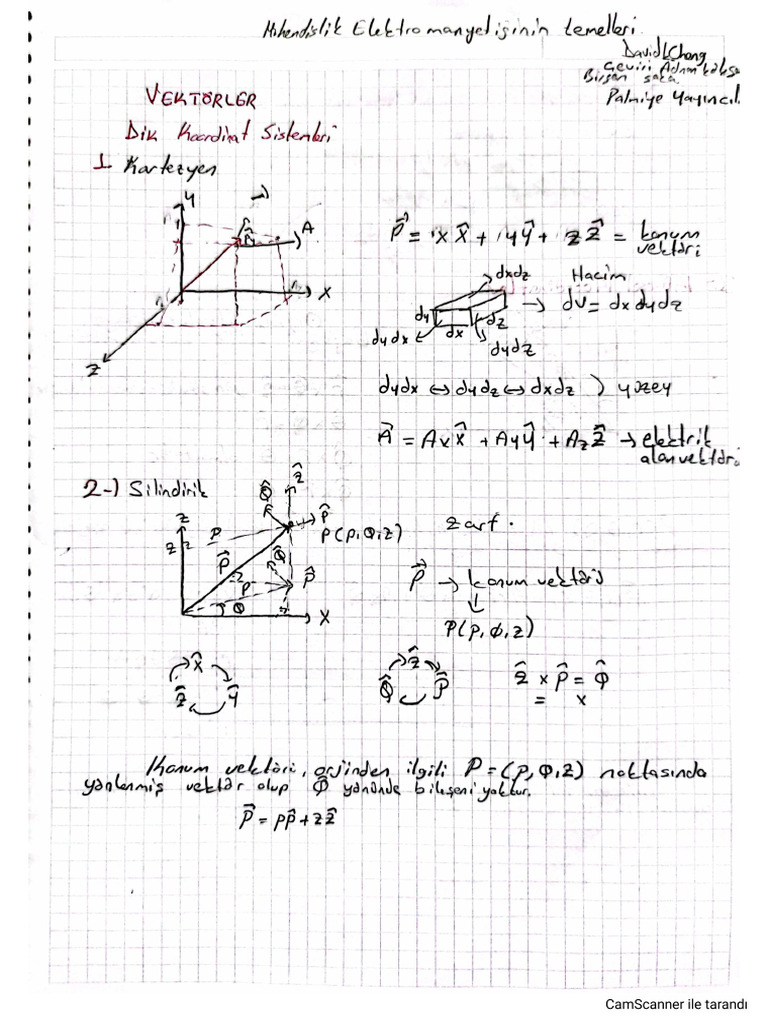 Mühendislik Elektromanyetiğinin temelleri
David K Cheng
Çeviri Adnan Köksal
Birsen Saka
Palmiye Yayıncıl
VEKTÖRLER
Dik Koordinat Sistemleri
1 Kartezyen
y
A
x
z
P⃗ = x x̂ + y ŷ + z ẑ = konum vektörü
dxdz
Hacim
dy
dx
dz
→ dv = dxdydz
dydx
dydz
dydx ↔ dydz ↔ dxdz ) yüzey
A⃗ = Ax x̂ + Ay ŷ + Az ẑ → elektrik
alan vektörü
2-) Silindirik
ẑ
φ̂
ρ̂
P(ρ,φ,z)
z
ρ
z
P⃗
φ̂
ρ
ρ̂
φ
x
zarf.
P⃗ → konum vektörü
↓
P(ρ,φ,z)
x̂
ẑ ŷ
ẑ
φ̂ ρ̂
ẑ x ρ̂ = φ̂
= x
Konum vektörü, orjinden ilgili P = (ρ,φ,z) noktasında
yönlenmiş vektör olup φ̂ yönünde bileşeni yoktur.
P⃗ = ρρ̂ + zẑ
CamScanner ile tarandı